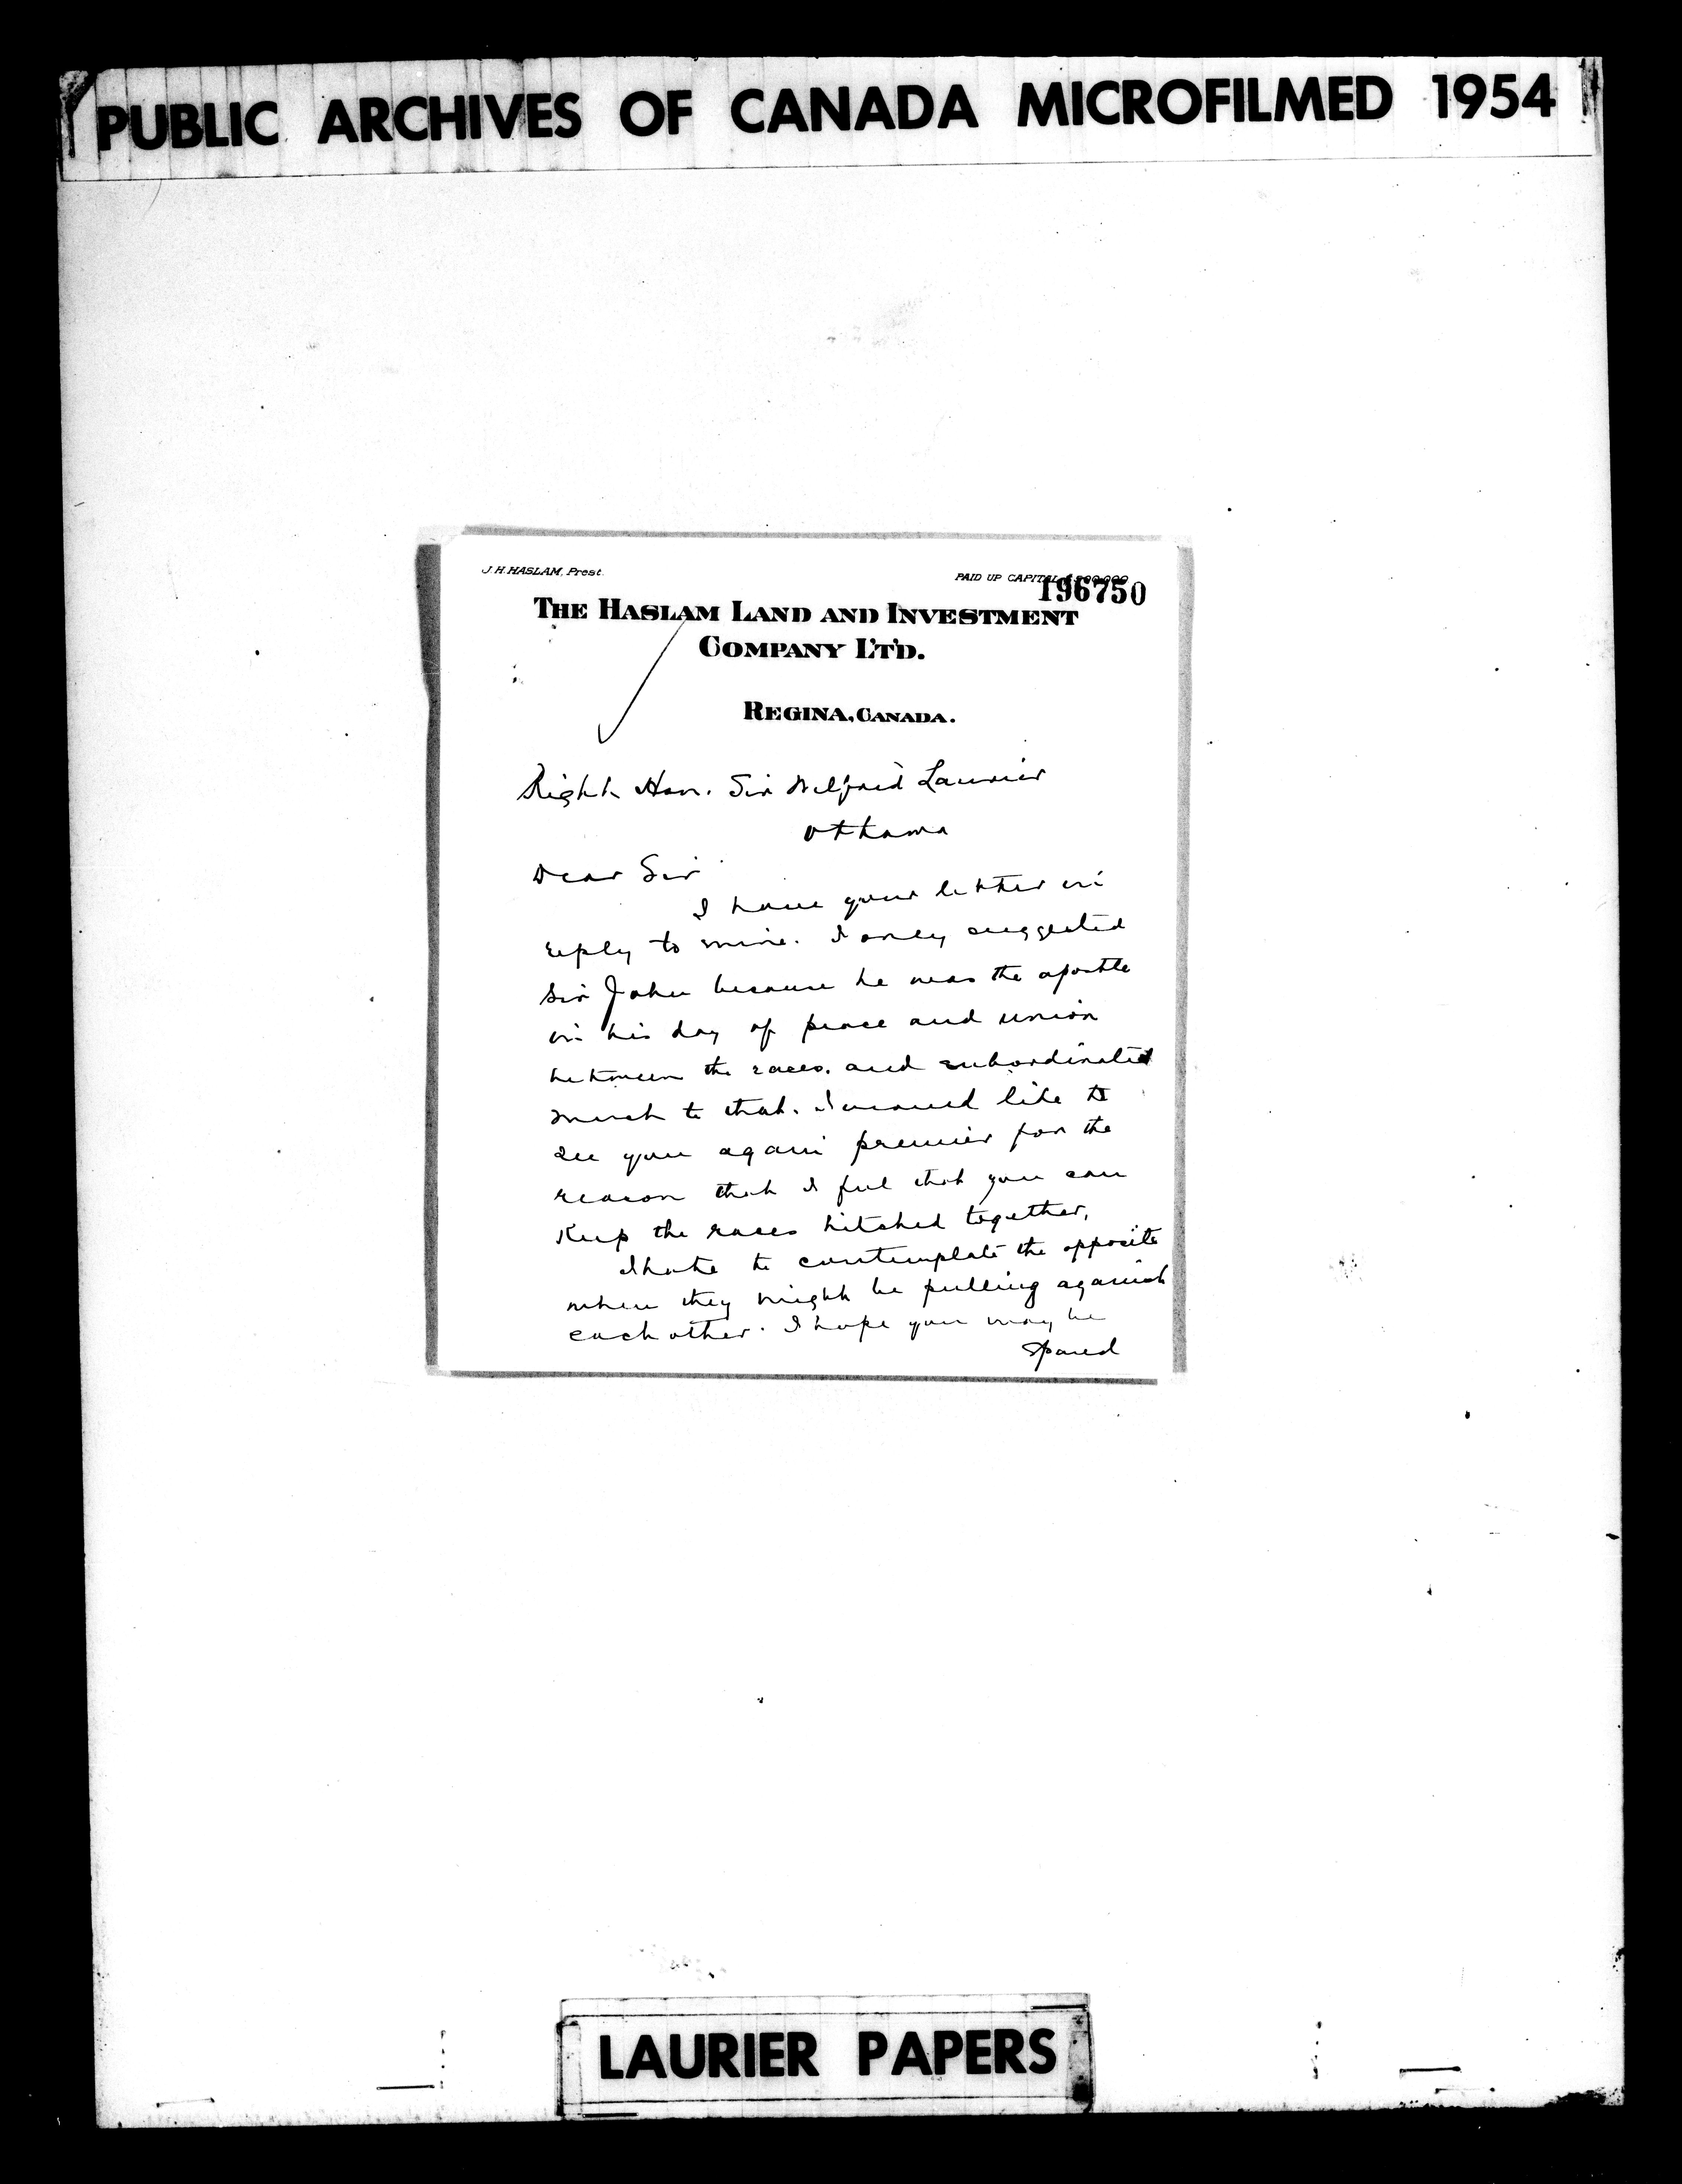 PUBLIC ARCHIVES OF CANADA MICROFILMED 1954
J. H. HASLAM, Prest.
PAID UP CAPITAL
196750
THE HASLAM LAND AND INVESTMENT
COMPANY LT'D.
REGINA, CANADA.
Right Hon. Sir Wilfrid Laurier
Ottawa
Dear Sir
I have your letter in
reply to mine. I only suggested
Sir John because he was the apostle
in his day of peace and union
between the races. and subordinated
much to that. I would like to
see you again premier for the
reason that I feel that you can
Keep the races hitched together.
I hate to contemplate the opposite
when they might be pulling against
each other. I hope you may be
spared
LAURIER PAPERS